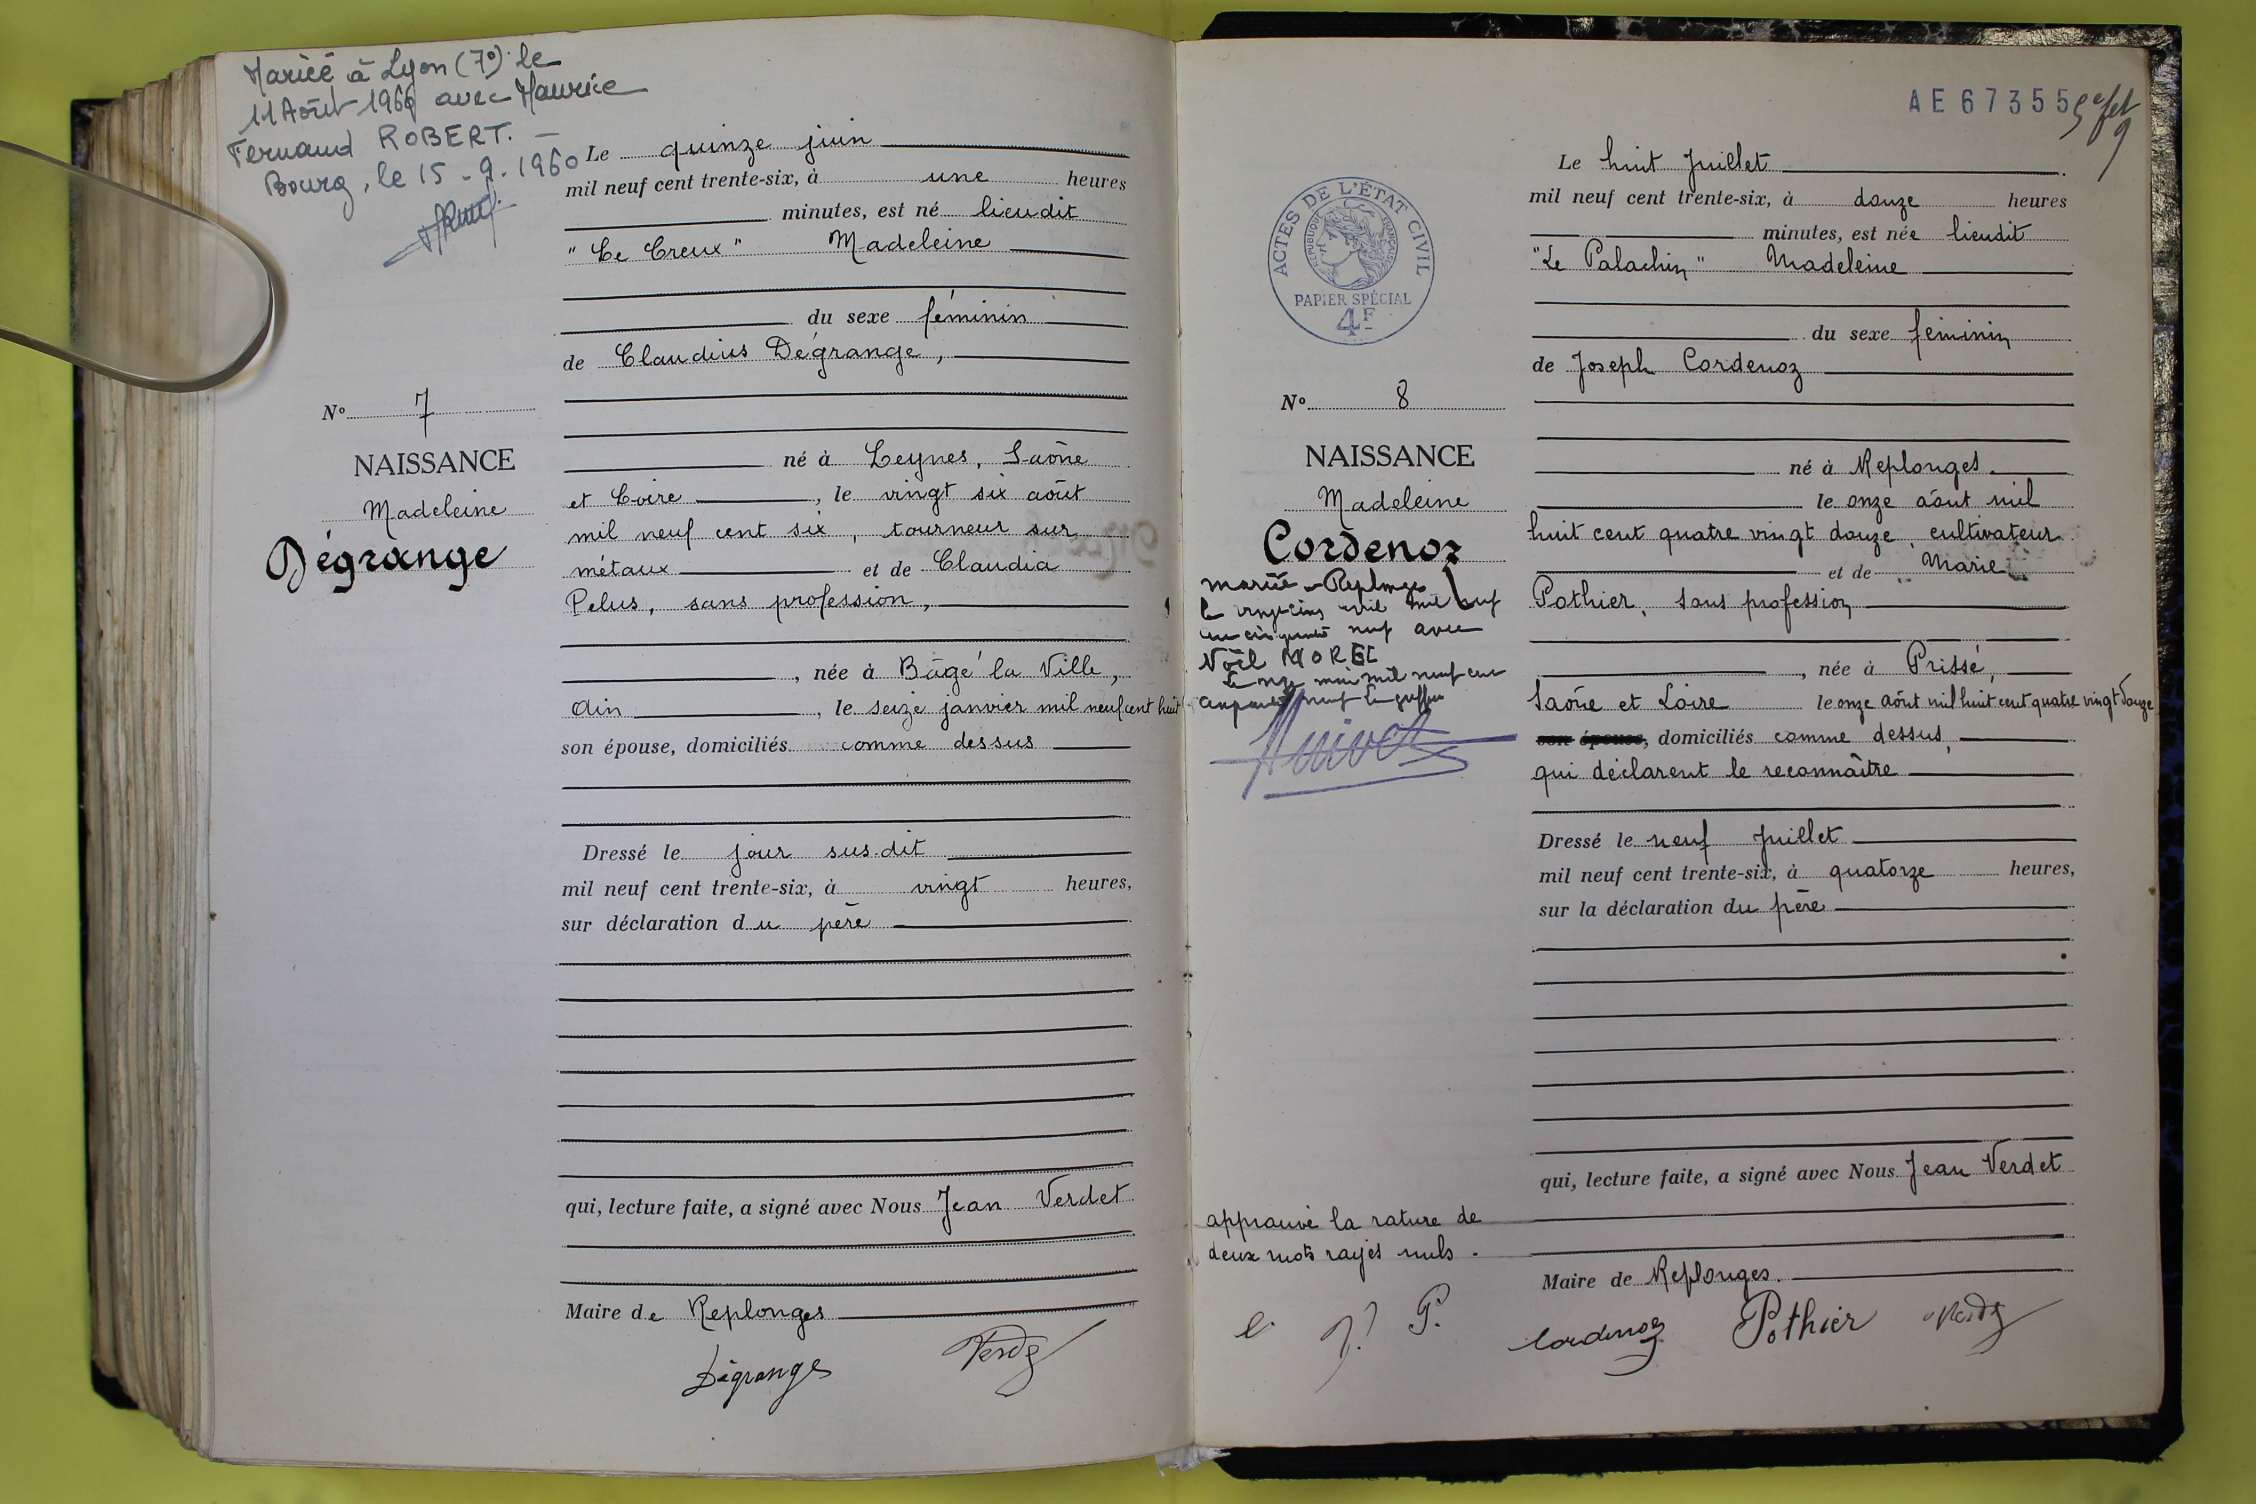 Mariée à Lyon (7e) le
11 Août 1960 avec Maurice
Fernand ROBERT. —
Bourg, le 15-9-1960
Le quinze juin
mil neuf cent trente-six, à une heures
minutes, est né lieudit
"Le Creux" Madeleine
du sexe féminin
de Claudius Dégrange,
No 7
NAISSANCE
Madeleine
Dégrange
né à Leynes, Saône
et Loire, le vingt six août
mil neuf cent six, tourneur sur
métaux et de Claudia
Pelus, sans profession,
, née à Bâgé la Ville,
Ain, le seize janvier mil neuf cent huit
son épouse, domiciliés comme dessus
Dressé le jour sus-dit
mil neuf cent trente-six, à vingt heures,
sur déclaration du père
qui, lecture faite, a signé avec Nous Jean Verdet
Maire de Replonges
Dégrange
AE 67355
ACTES DE L'ÉTAT CIVIL
RÉPUBLIQUE FRANÇAISE
PAPIER SPÉCIAL
4F
Le huit Juillet
mil neuf cent trente-six, à douze heures
minutes, est née lieudit
"Le Palachin" Madeleine
du sexe féminin
de Joseph Cordenoz
No 8
NAISSANCE
Madeleine
Cordenoz
mariée à Replonges
le vingt cinq avril mil neuf
cent cinquante neuf avec
Noël MOREL
Le onze mai mil neuf cent
cinquante neuf Le greffier
né à Replonges.
le onze août mil
huit cent quatre vingt douze, cultivateur
et de Marie
Pothier, sans profession
, née à Prissé,
Saône et Loire le onze août mil huit cent quatre vingt douze
son épouse, domiciliés comme dessus,
qui déclarent le reconnaître
Dressé le neuf Juillet
mil neuf cent trente-six, à quatorze heures,
sur la déclaration du père
qui, lecture faite, a signé avec Nous Jean Verdet
approuvé la rature de
deux mots rayés nuls.
Maire de Replonges.
P.
Cordenoz Pothier